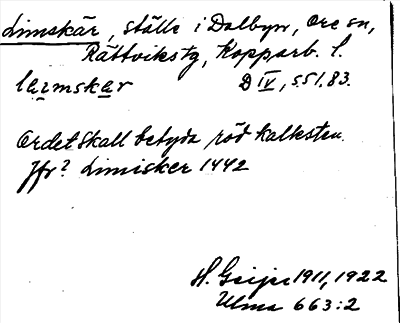 Limskär, ställe i Dalbyn, Ore sn,
Rättvikstg, Kopparb. l.
laimskar D IV, s. 51, 83.
Ordet skall betyda röd kalksten.
Jfr? Limisker 1442
H. Geijer 1911, 1922
Ulma 663:2